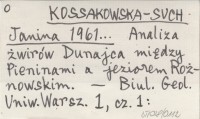 KOSSAKOWSKA-SUCH
Janina 1961... Analiza
żwirów Dunajca między
Pieninami a jeziorem Roż-
nowskim. — Biul. Geol.
Uniw. Warsz. 1, cz. 1: